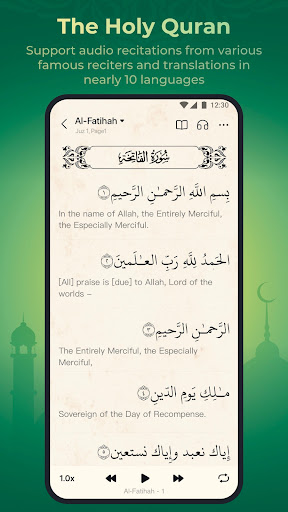 The Holy Quran
Support audio recitations from various
famous reciters and translations in
nearly 10 languages
12:30
Al-Fatihah
Juz 1, Page1
سُورَةُ الفَاتِحَةِ
بِسْمِ اللَّهِ الرَّحْمَٰنِ الرَّحِيمِ ١
In the name of Allah, the Entirely Merciful,
the Especially Merciful.
الحَمدُ لِلَّهِ رَبِّ العـٰلَمينَ ٢
[All] praise is [due] to Allah, Lord of the
worlds –
الرَّحمـٰنِ الرَّحيمِ ٣
The Entirely Merciful, the Especially
Merciful,
مـٰلِكِ يَومِ الدّينِ ٤
Sovereign of the Day of Recompense.
إِيّاكَ نَعبُدُ وَإِيّاكَ نَستَعينُ ٥
1.0x
Al-Fatihah - 1